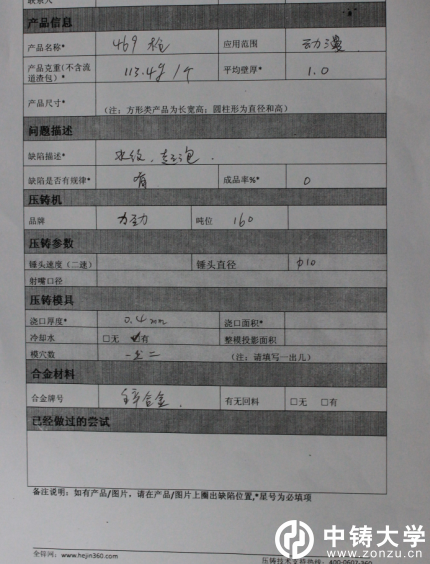 产品信息
产品名称* 469 枪 应用范围 动漫
产品克重(不含流道渣包)* 113.4g/个 平均壁厚* 1.0
产品尺寸* (注：方形类产品为长宽高；圆柱形为直径和高)
问题描述
缺陷描述* 水纹、起泡.
缺陷是否有规律* 有 成品率%* 0
压铸机
品牌 力劲 吨位 160
压铸参数
锤头速度（二速） 锤头直径 φ10
射嘴口径
压铸模具
浇口厚度* 0.4mm 浇口面积*
冷却水 □无 有 整模投影面积
模穴数 一出二 (注：请填写一出几)
合金材料
合金牌号 锌合金. 有无回料 □无 □有
已经做过的尝试
备注说明：如有产品/图片，请在产品/图片上圈出缺陷位置,*星号为必填项
中铸大学
www.zonzu.cn
www.hejin360.com
压铸技术支持热线：400-0607-360